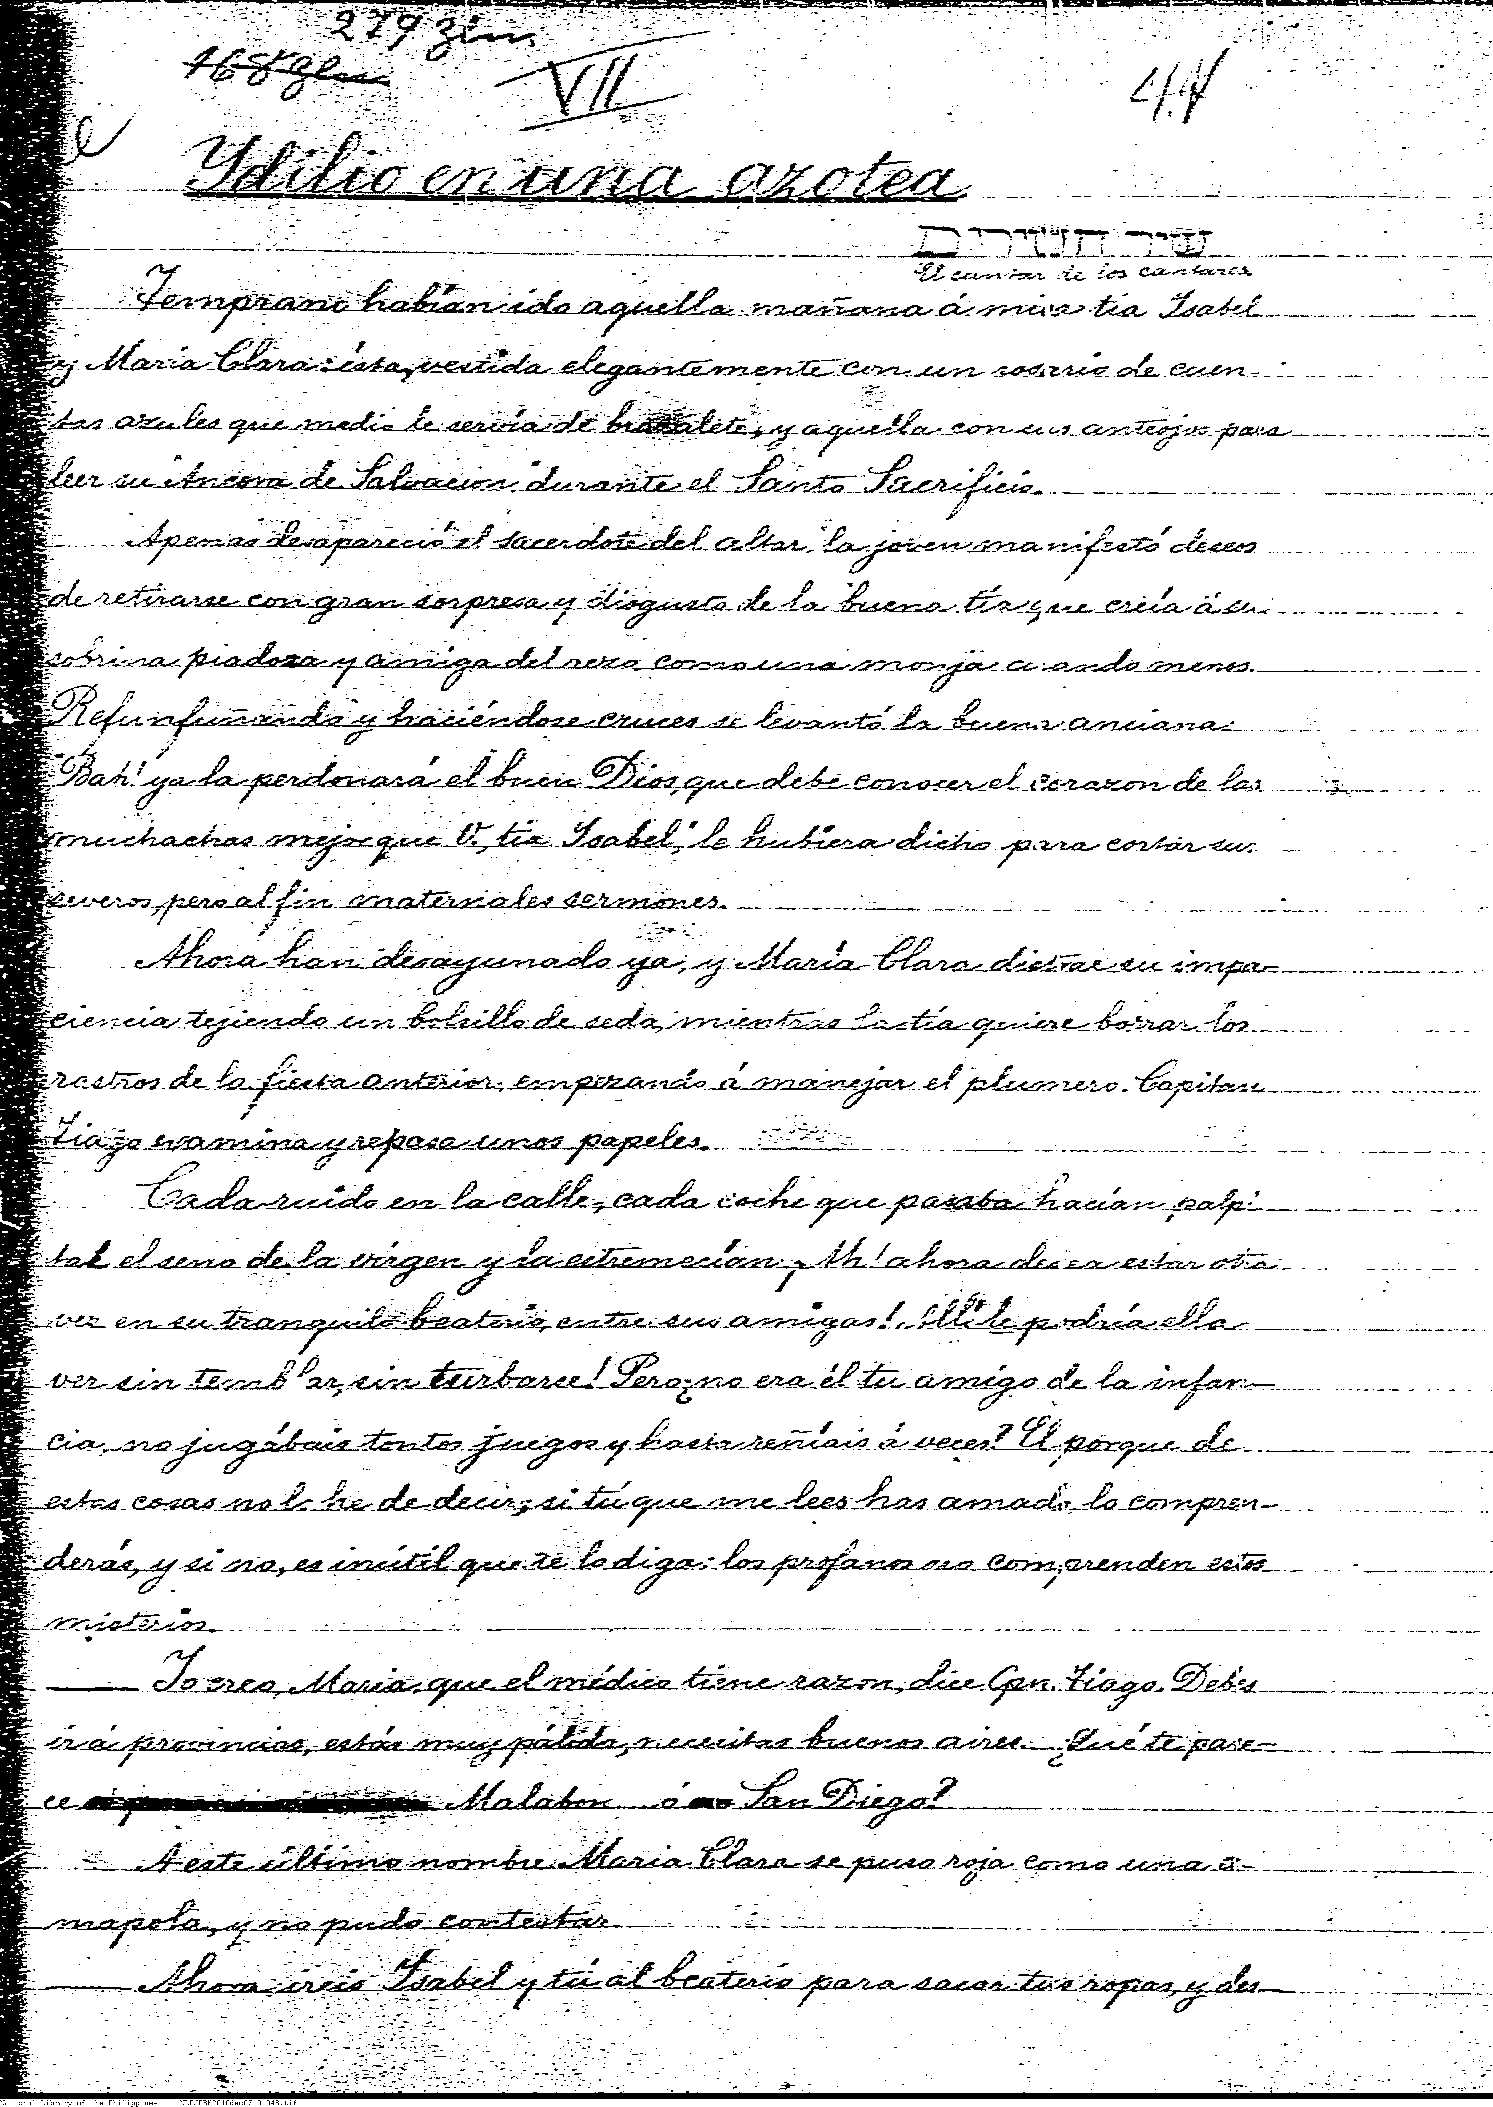 279 Zln.
168 Zln
VII
44
Ydilio en una azotea
שיר השירים
El cantar de los cantares
Temprano habían ido aquella mañana á misa tia Isabel
y María Clara: ésta, vestida elegantemente con un rosario de cuen-
tas azules que medio le servía de brazalete, y aquella con sus anteojos para
leer su "Ancora de Salvacion" durante el Santo Sacrificio.
Apenas desapareció el sacerdote del altar la joven manifestó deseos
de retirarse con gran sorpresa y disgusto de la buena tia que creía á su
sobrina piadosa y amiga del rezo como una monja cuando menos.
Refunfuñando y haciéndose cruces se levantó la buena anciana:
"Bah! ya la perdonará el buen Dios, que debe conocer el corazon de las
muchachas mejor que V. tia Isabel", le hubiera dicho para cortar sus
severos, pero al fin maternales sermones.
Ahora han desayunado ya, y María Clara distrae su impa-
ciencia tejiendo un bolsillo de seda, mientras la tía quiere borrar los
rastros de la fiesta anterior, empezando á manejar el plumero. Capitan
Tiago examina y repasa unos papeles.
Cada ruido en la calle, cada coche que pasaba hacían palpi
tar el seno de la vírgen y la estremecían; Ah! ahora desea estar otra
vez en su tranquilo beaterio, entre sus amigas! Allí le podría ella
ver sin temblar, sin turbarse! Pero ¿no era él tu amigo de la infan-
cia, no jugábais tontos juegos y hasta reñíais á veces? El porque de
estas cosas no lo he de decir; si tú que me lees has amado lo compren-
derás, y si no, es inútil que te lo diga: los profanos no comprenden estos
misterios.
— Yo creo, Maria, que el médico tiene razon, dice Cpn. Tiago. Debes
ir á provincias, estás muy pálida, necesitas buenos aires. ¿Qué te pare-
ce Malabon ó San Diego?
A este último nombre Maria Clara se puso roja como una a-
mapola, y no pudo contestar
— Ahora ireis Isabel y tú al beaterio para sacar tus ropas, y des-